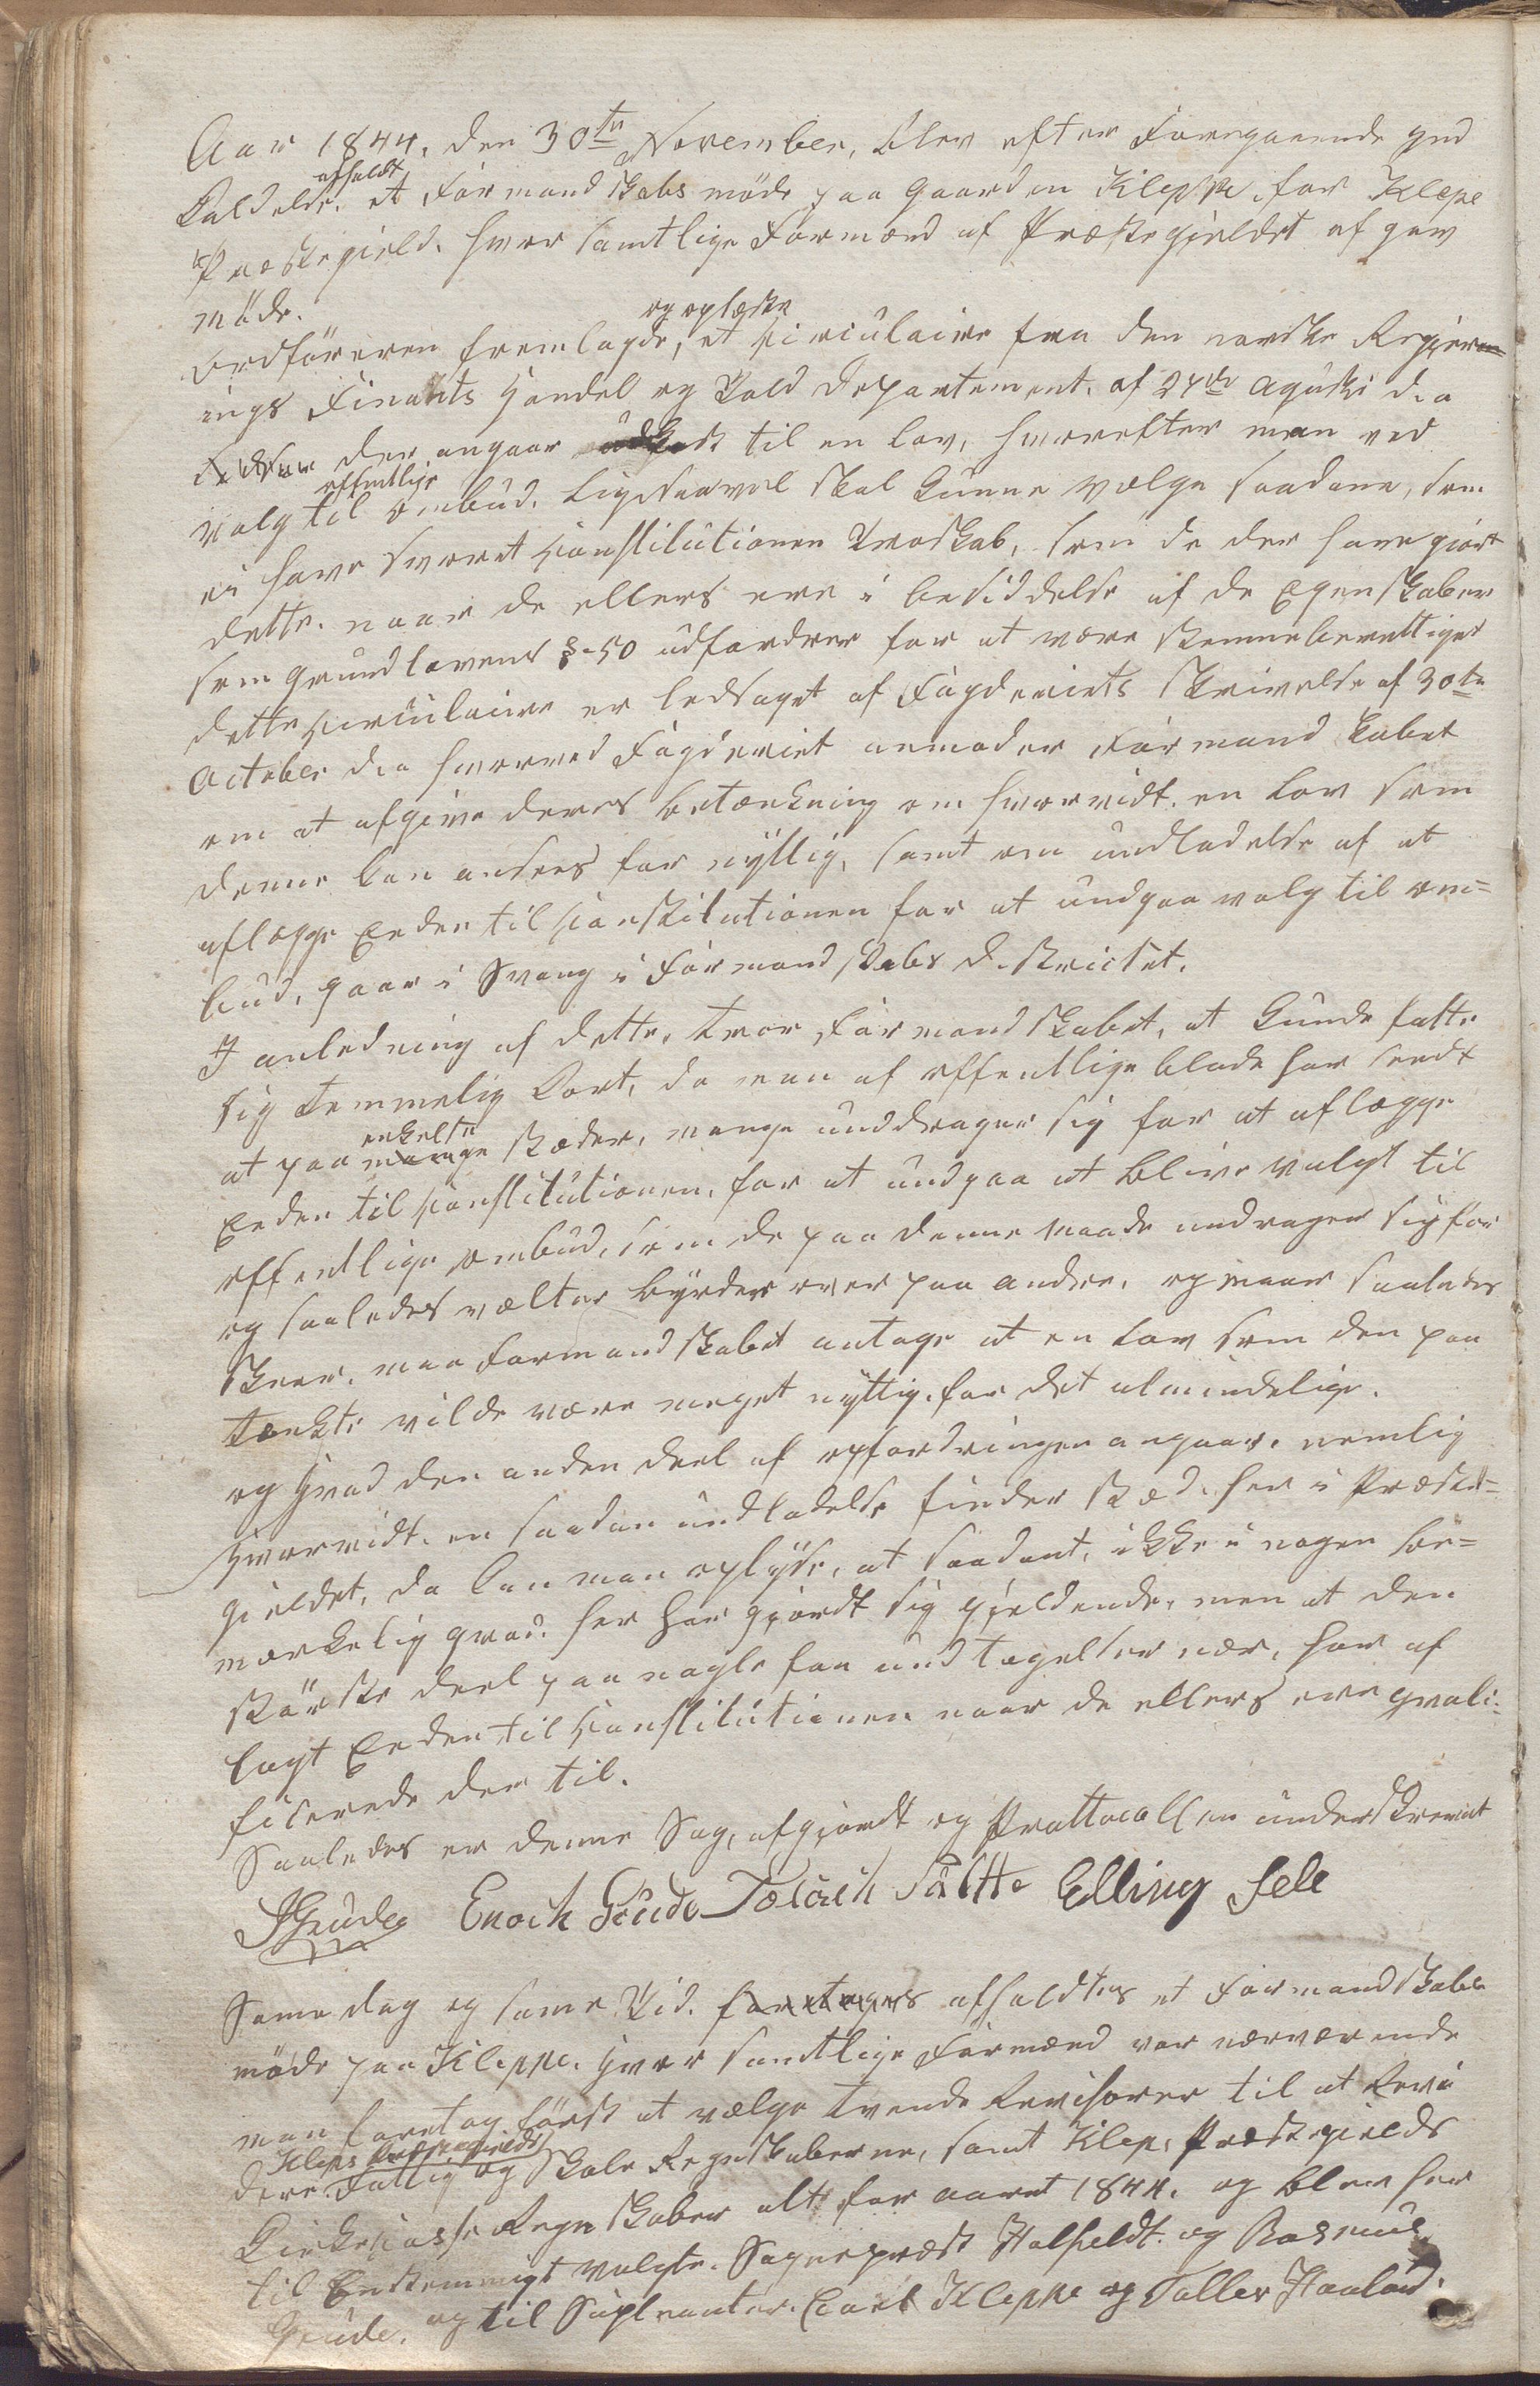 Aar 1844, den 30te November, blev efter Foregaaende Ind
Kaldelse, afholdt et Formandskabsmöde paa Gaarden Kleppe, for Klepe
Præstegield. hvor samtlige Formænd af Præstegjeldet af gav
möde.
Ordföreren fremlagde, og oplæste et Circulaire fra den norske Regjer
ings Finants Handel og Told Departement. af 24de Agusti d. a
der angaar udkast til en Lov, hvorefter man ved
Valg til offentlige Ombud. ligesaavel skal kunne vælge saadane, som
ei have svoret Constitutionen Troskab, som de der have giort
dette. naar de ellers ere i besiddelse af de Egenskaber
som Grundlovens §-50 udfordrer for at være stemmeberettiget
dette Circulaire er ledsaget af Fogderiets Skrivelse af 30te
October d. a hvorved Fogderiet anmoder Formandskabet
om at afgive deres betænkning om hvorvidt. en Lov som
denne kan ansees for nyttig, samt om undladelse af at
aflægge Eeden til Constitutionen for at undgaa valg til om=
bud, gaar i Svang i Formandskabs Districtet.
I anledning af dette, troer Formandskabet, at kunde fatte
sig temmelig kort, da man af offentlige blade har seedt
at paa mange enkelte Stæder, mange unddrager sig for at aflægge
Eeden til Constitutionen, for at undgaa at blive valgt til
offentlige Ombud, som de paa denne maade undrager sig for
og saaledes vælter byrder over paa andre, og naar saaledes
skeer, maa Formandskabet antage at en Lov som den paa
tænkte vilde være meget nyttig for det almindelige.
og Hvad den anden deel af opfordringen angaar. nemlig
Hvorvidt. en saadan undladelse finder Sted. her i Præste=
gieldet, da kan man oplyse, at saadant, ikke i nogen be=
mærkelig grad. her har gjordt sig gjeldende, men at den
störste deel paa nogle faa undtagelser nær, har af
lagt Eeden til Constitutionen naar de ellers ere qvali=
ficerede der til.
Saaledes er denne Sag, afgjordt og Prottocollen underskrevet
Enoch Grude Elling Sele
Same dag og same Tid. foretages afholdtes et Formandskabs
möde paa Kleppe. Hvor samtlige Formænd var nærværende
man foretog först at vælge tvende Revisorer til at Revi
dere. Kleps Præstegields Fattig og Skole Regnskaberne, samt Klep. Præstegields
Kirkecasse Regnskaber alt for aaret 1844. og blev her
til Eenstemmigt valgte. Sognepræst Halfeldt og Rasmus
Grude, og til Suplianter. Carl Kleppe og Tollev Haaland.